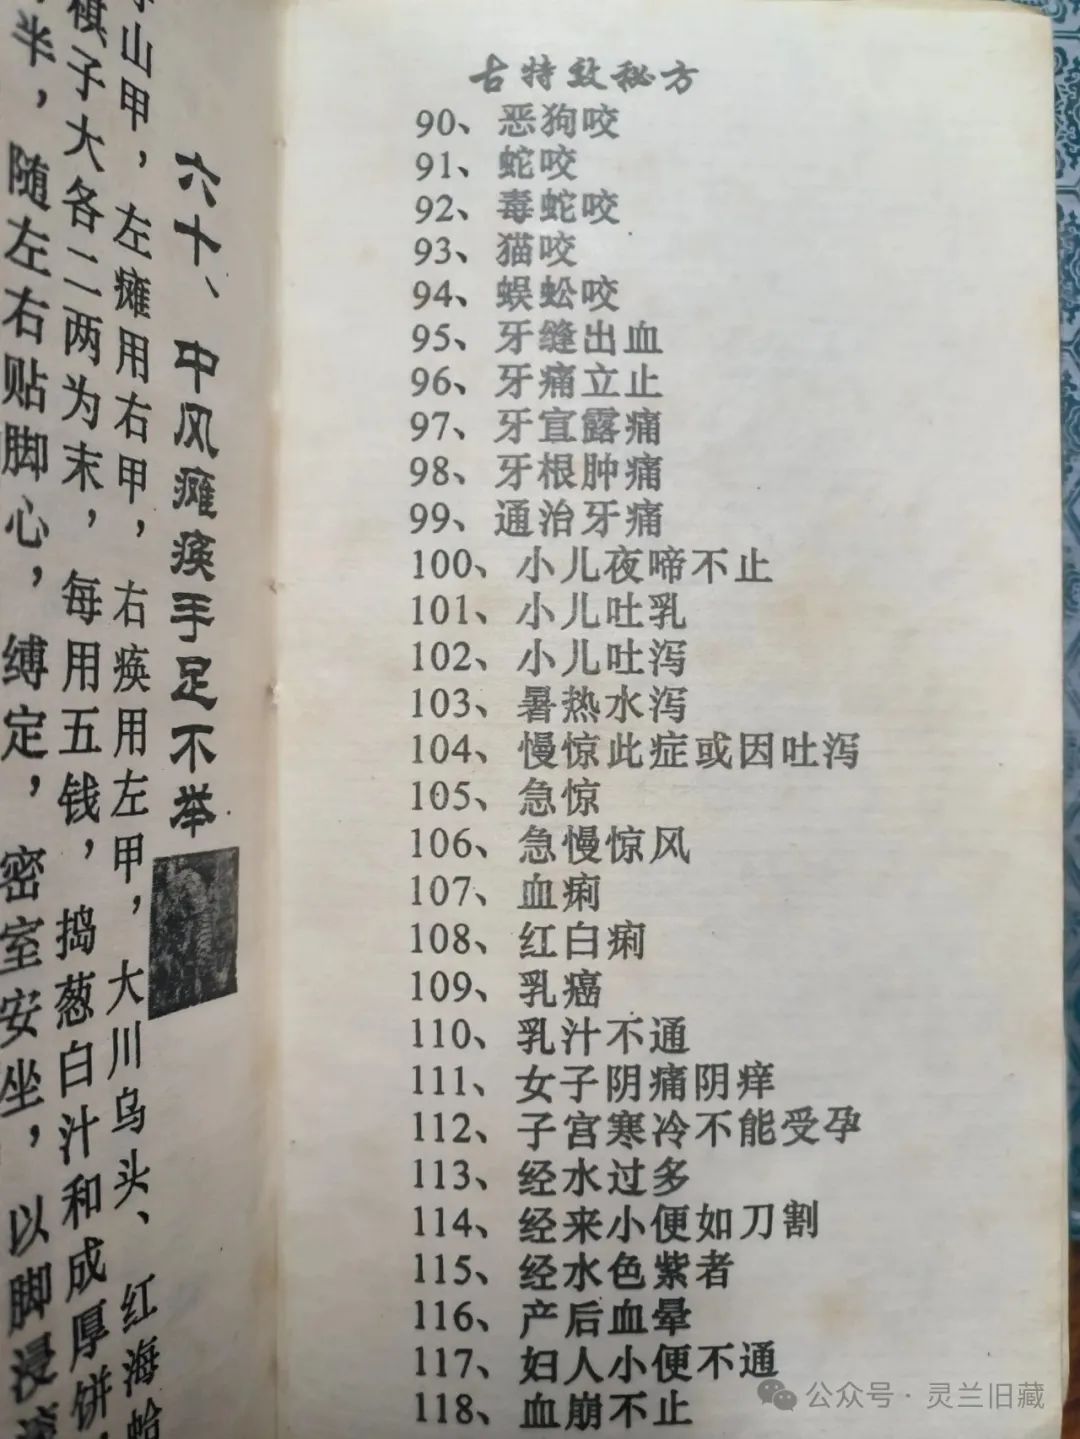 古特效秘方
90、恶狗咬
91、蛇咬
92、毒蛇咬
93、猫咬
94、蜈蚣咬
95、牙缝出血
96、牙痛立止
97、牙宣露痛
98、牙根肿痛
99、通治牙痛
100、小儿夜啼不止
101、小儿吐乳
102、小儿吐泻
103、暑热水泻
104、慢惊此症或因吐泻
105、急惊
106、急慢惊风
107、血痢
108、红白痢
109、乳癌
110、乳汁不通
111、女子阴痛阴痒
112、子宫寒冷不能受孕
113、经水过多
114、经来小便如刀割
115、经水色紫者
116、产后血晕
117、妇人小便不通
118、血崩不止
六十、中风瘫痪手足不举
山甲，左瘫用右甲，右痪用左甲，大川乌头、红海蛤
棋子大各二两为末，每用五钱，捣葱白汁和成厚饼
半，随左右贴脚心，缚定，密室安坐，以脚浸
公众号·灵兰旧藏